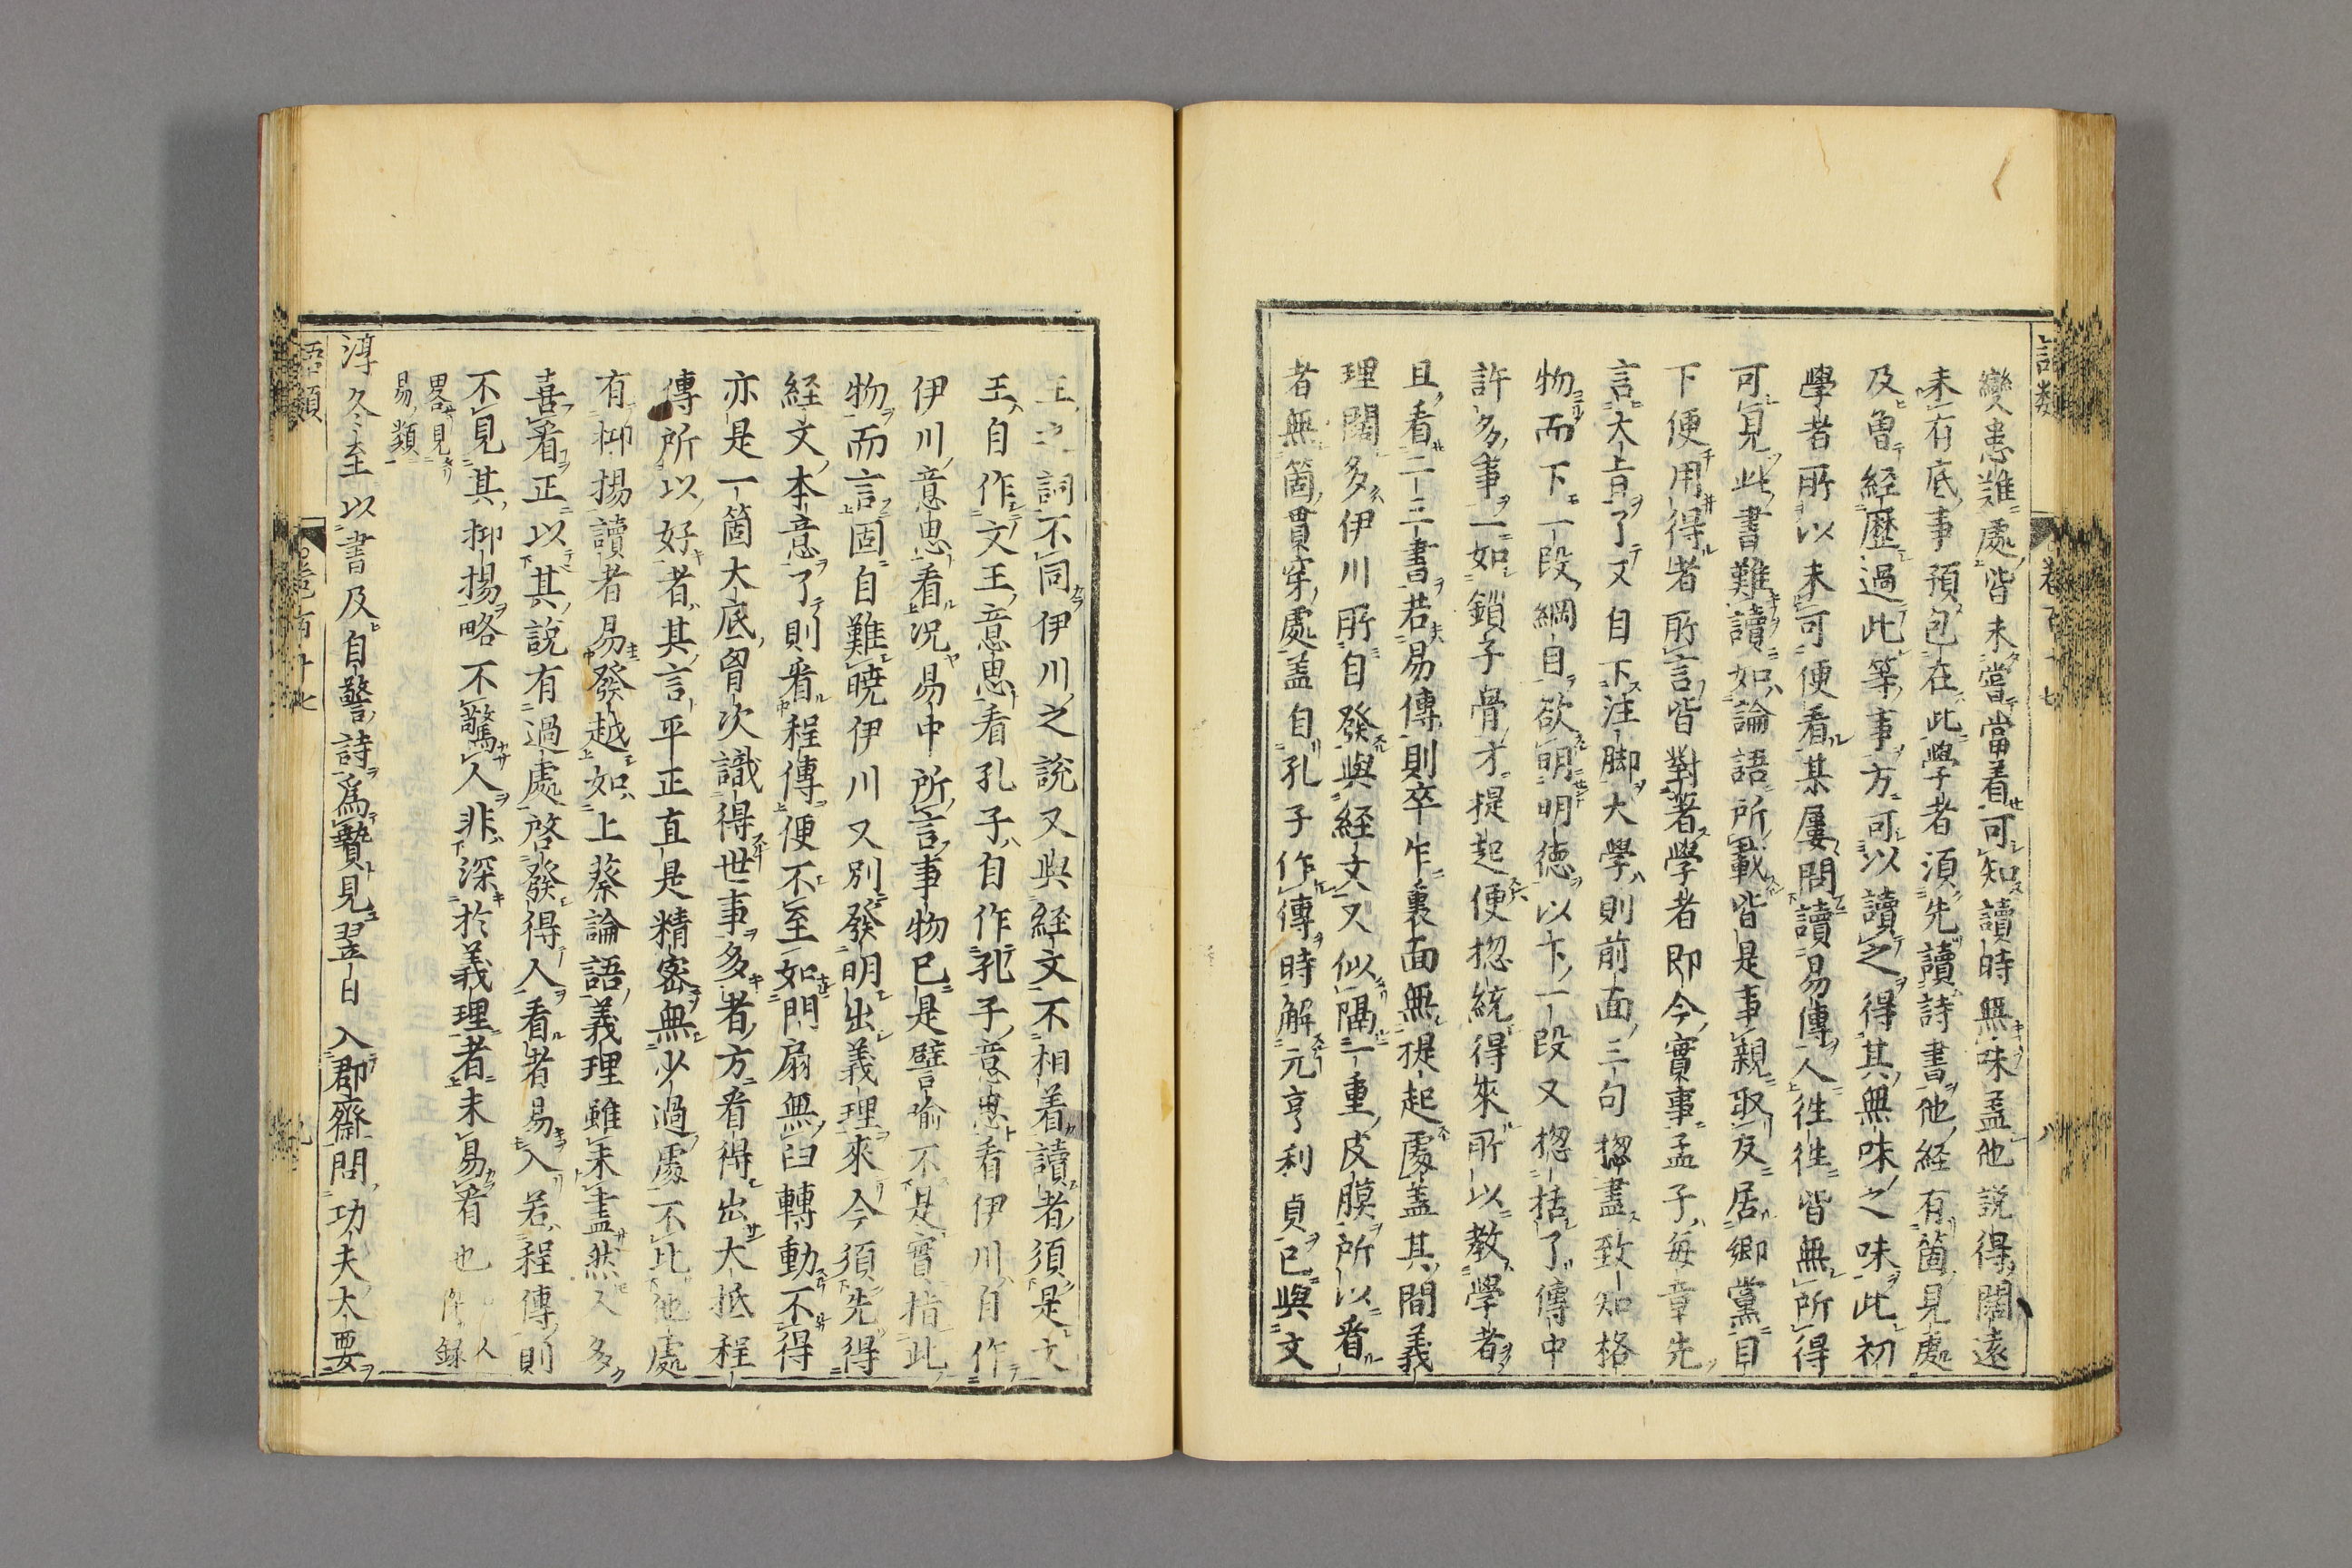 語類
卷百十七
八
變患難處皆未嘗當着可知讀時無味蓋他說得闊遠
未有底事預包在此學者須先讀詩書他経有箇見處
及曽経歷過此等事方可以讀之得其無味之味此初
學者所以未可便看某屢問讀易傳人徃徃皆無所得
可見此書難讀如論語所載皆是事親取友居鄉黨目
下便用得者所言皆對著學者即今實事孟子每章先
言大㫖了又自下注脚大學則前面三句揔盡致知格
物而下一段綱目欲明明徳以下一段又揔括了傳中
許多事一如鎖子骨才提起便揔統得來所以教學者
且看二三書若易傳則卒乍裏面無提起處蓋其間義
理闊多伊川所自發與経文又似隔一重皮膜所以看
者無箇貫穿處蓋自孔子作傳時解元亨利貞已與文
王之詞不同伊川之說又與経文不相着讀者須是文
王自作文王意思看孔子自作孔子意思看伊川自作
伊川意思看况易中所言事物已是譬喻不是實指此
物而言固自難曉伊川又別發明出義理來今須先得
経文本意了則看程傳便不至如門扇無臼轉動不得
亦是一箇大底胷次識得世事多者方看得出大抵程
傳所以好者其言平正直是精密無少過處不比他處
有抑揚讀者易發越如上蔡論語義理雖未盡然人多
喜看正以其說有過處啓發得人看者易入若程傳則
不見其抑揚略不驚人非深於義理者未易看也
畧見
易類
淳冬至以書及自警詩爲贄見翌日入郡齋問功夫大要
語類